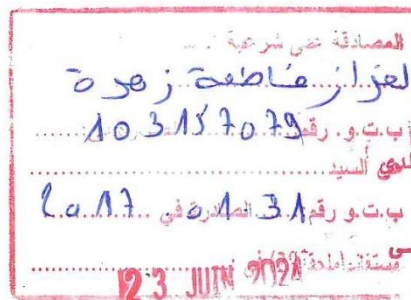 المصادقة على شرعية
لعزاز فاطمة زهرة
ب.ت.و. رقم 103157079
لدى السيد
ب.ت.و رقم الصادرة في 31-01-2017
23 JUIN 2024